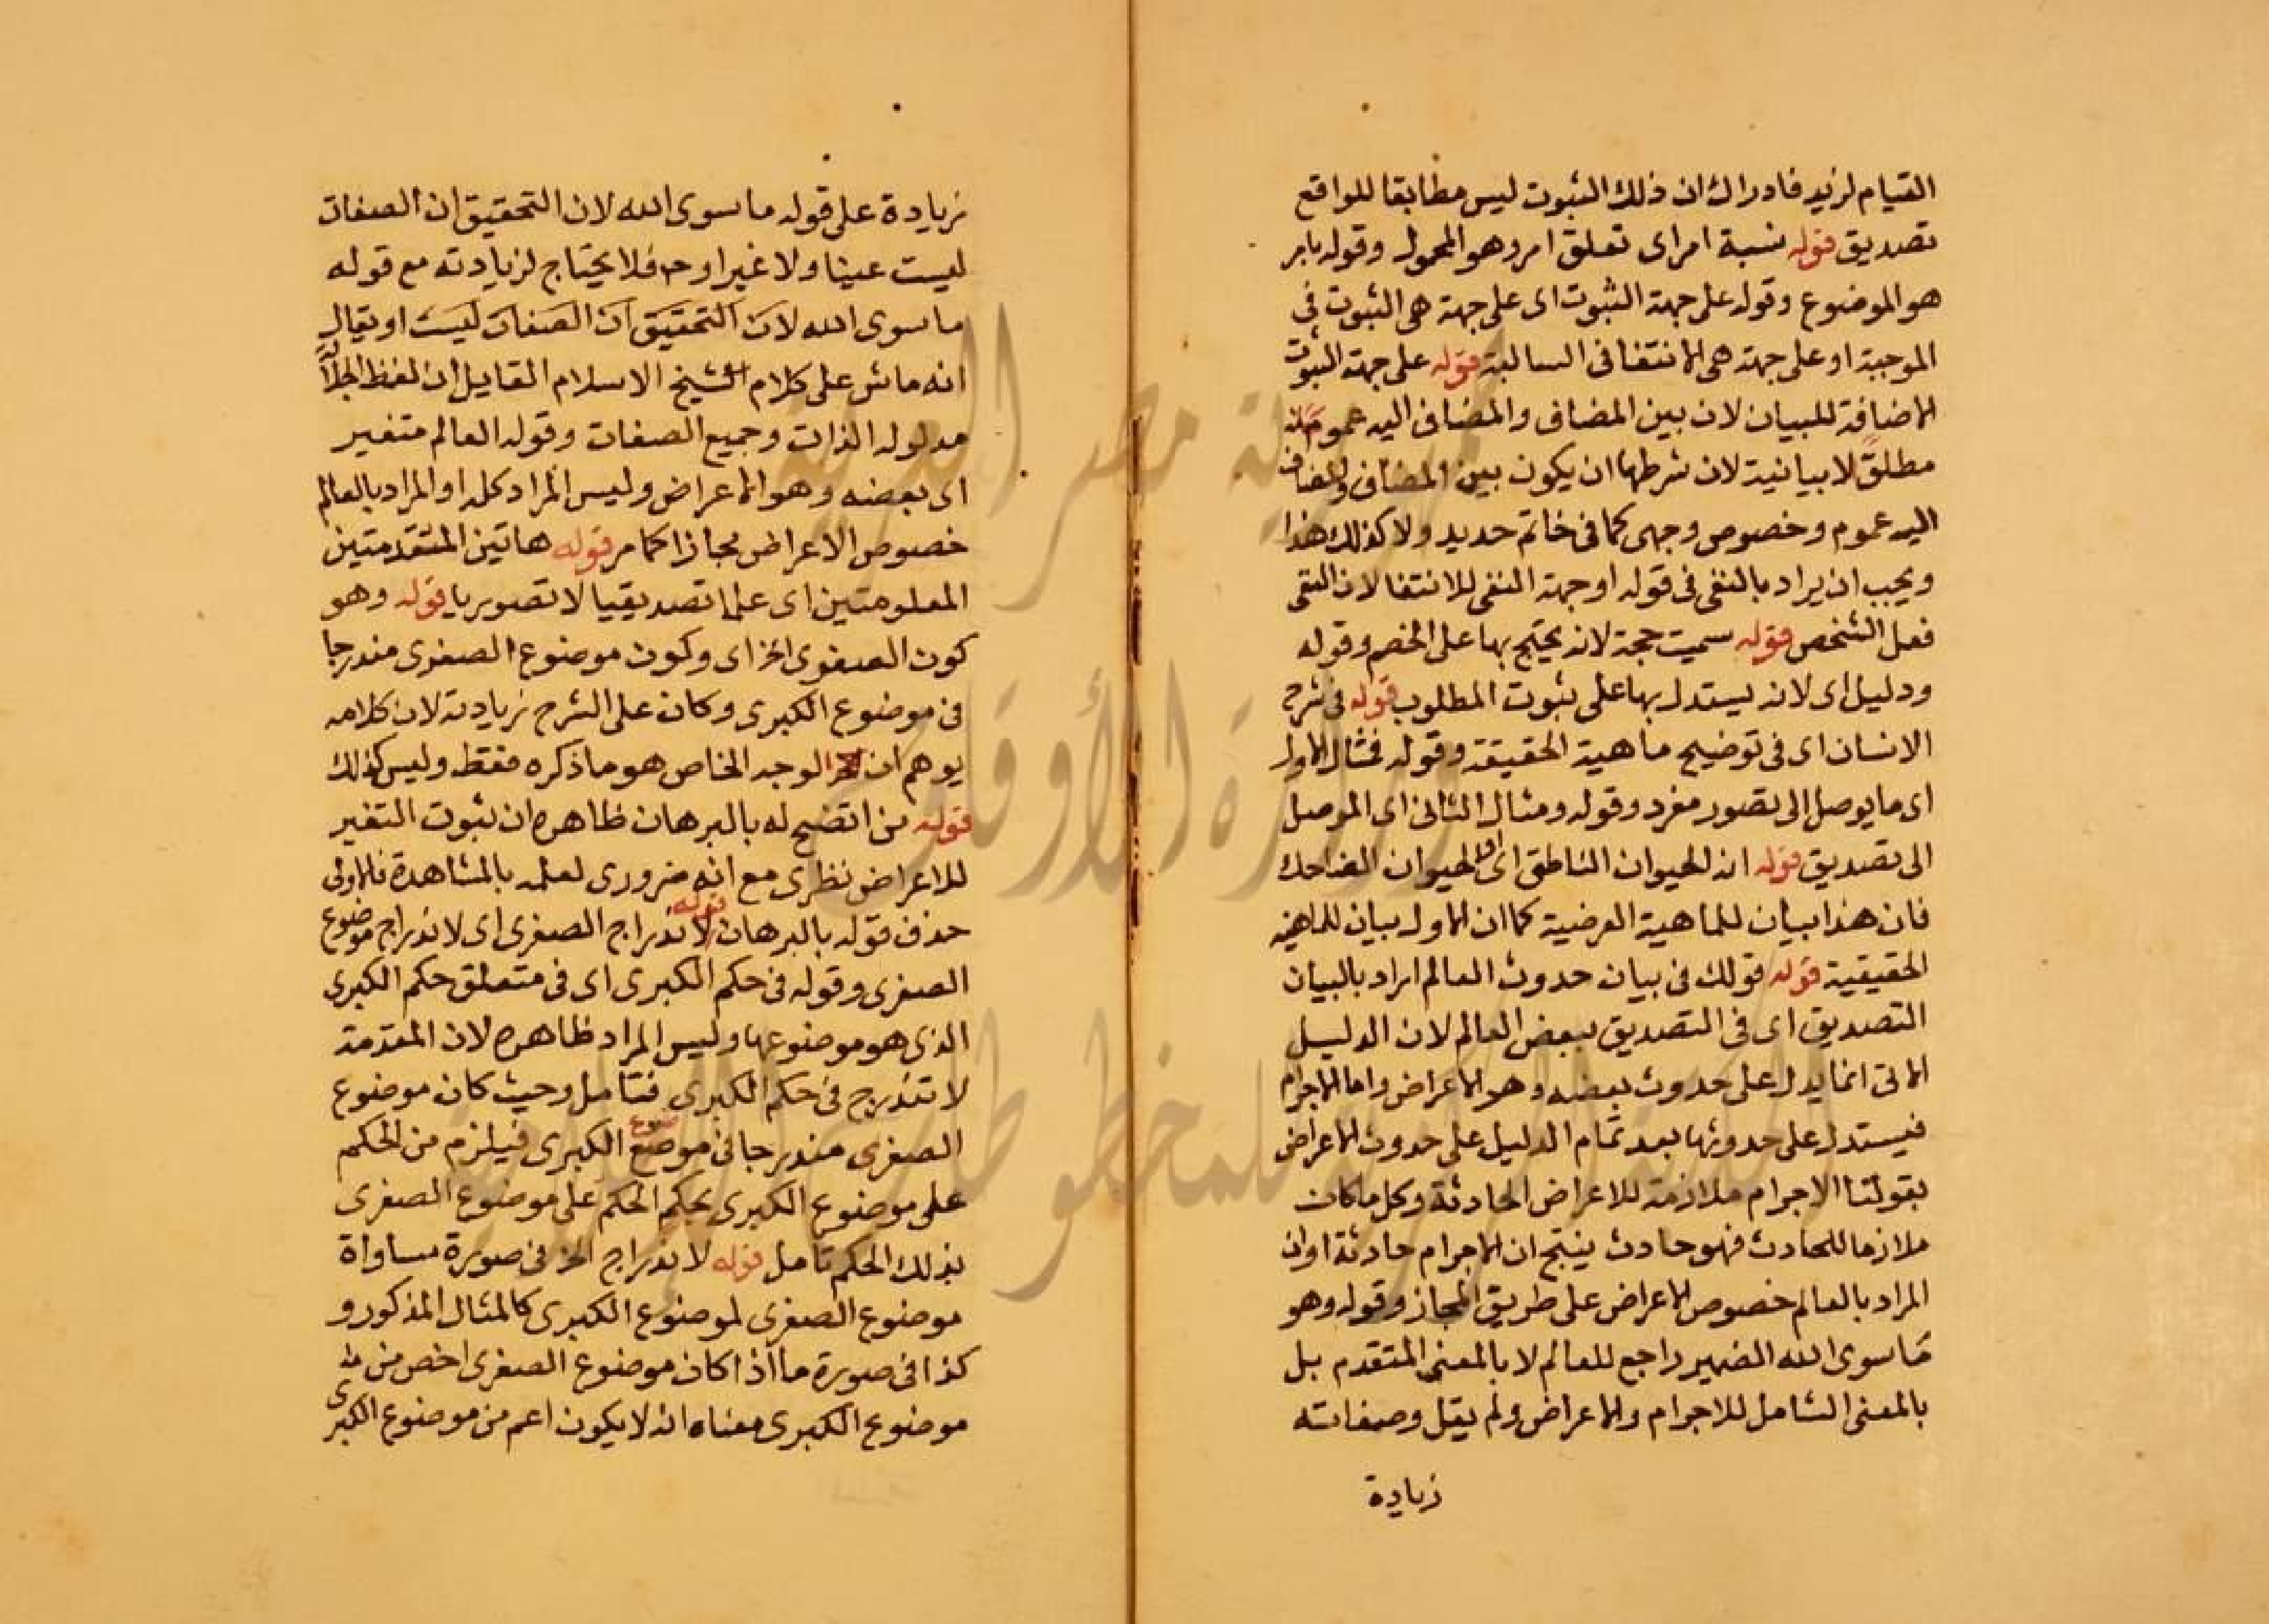 القيام لزيد فادراك ان ذلك الثبوت ليس مطابقا للواقع
تصديق قوله نسبة امر اى تعلق امر وهو المحمول وقوله بامر
هو الموضوع وقوله على جهة الثبوت اى على جهة هى الثبوت فى
الموجبة او على جهة هى الانتفا فى السالبة قوله على جهة الثبوت
الاضافة للبيان لان بين المضاف والمضاف اليه عموم
مطلق لا بيانية لان شرطها ان يكون بين المضاف والمضاف
اليه عموم وخصوص وجهى كما فى خاتم حديد ولا كذلك هذا
ويجب ان يراد بالنفى فى قوله او جهة النفى للانتفا لان النفى
فعل الشخص قوله سميت حجة لانه يحتج بها على الخصم وقوله
ودليل اى لانه يستدل بها على ثبوت المطلوب قوله فى شرح
الانسان اى فى توضيح ماهية الحقيقة وقوله فمثال الاول
اى ما يوصل الى تصور مفرد وقوله ومثال الثانى اى الموصل
الى تصديق قوله انه الحيوان الناطق اى او الحيوان الضاحك
فان هذا بيان للماهية العرضية كما ان الاول بيان للماهية
الحقيقية قوله قولك فى بيان حدوث العالم اراد بالبيان
التصديق اى فى التصديق ببعض العالم لان الدليل
الاتى انما يدل على حدوث بعضه وهو الاعراض واما الاجرام
فيستدل على حدوثها بعد تمام الدليل على حدوث الاعراض
بقولنا الاجرام ملازمة للاعراض الحادثة وكل ما كان
ملازما للحادث فهو حادث ينتج ان الاجرام حادثة او ان
المراد بالعالم خصوص الاعراض على طريق المجاز وقوله وهو
ما سوى الله الضمير راجع للعالم لا بالمعنى المتقدم بل
بالمعنى الشامل للاجرام والاعراض ولم يقل وصفاته
زيادة
زيادة على قوله ما سوى الله لان التحقيق ان الصفات
ليست عينا ولا غيرا وح فلا يحتاج لزيادته مع قوله
ما سوى الله لان التحقيق ان الصفات ليست او يقال
انه ماش على كلام الشيخ الاسلام القايل ان لفظ الجلالة
مدلوله الذات وجميع الصفات وقوله العالم متغير
اى بعضه وهو الاعراض وليس المراد كله او المراد بالعالم
خصوص الاعراض مجازا كما مر قوله هاتين المتقدمتين
المعلومتين اى علما تصديقيا لا تصوريا قوله وهو
كون الصغرى الخ اى وكون موضوع الصغرى مندرجا
فى موضوع الكبرى وكان على الشرح زيادته لان كلامه
يوهم ان الوجه الخاص هو ما ذكره فقط وليس كذلك
قوله من اتضح له بالبرهان ظاهره ان ثبوت التغير
للاعراض نظرى مع انه ضرورى لعلمه بالمشاهدة فالاولى
حذف قوله بالبرهان قوله لاندراج الصغرى اى لاندراج موضوع
الصغرى وقوله فى حكم الكبرى اى فى متعلق حكم الكبرى
الذى هو موضوعها وليس المراد ظاهره لان المقدمة
لا تندرج فى حكم الكبرى فتامل وحيث كان موضوع
الصغرى مندرجا فى موضوع الكبرى فيلزم من الحكم
على موضوع الكبرى بحكم الحكم على موضوع الصغرى
بذلك الحكم تامل قوله لاندراج الخ فى صورة مساواة
موضوع الصغرى لموضوع الكبرى كالمثال المذكور و
كذا فى صورة ما اذا كان موضوع الصغرى اخص من
موضوع الكبرى معناه انه لا يكون اعم من موضوع الكبرى